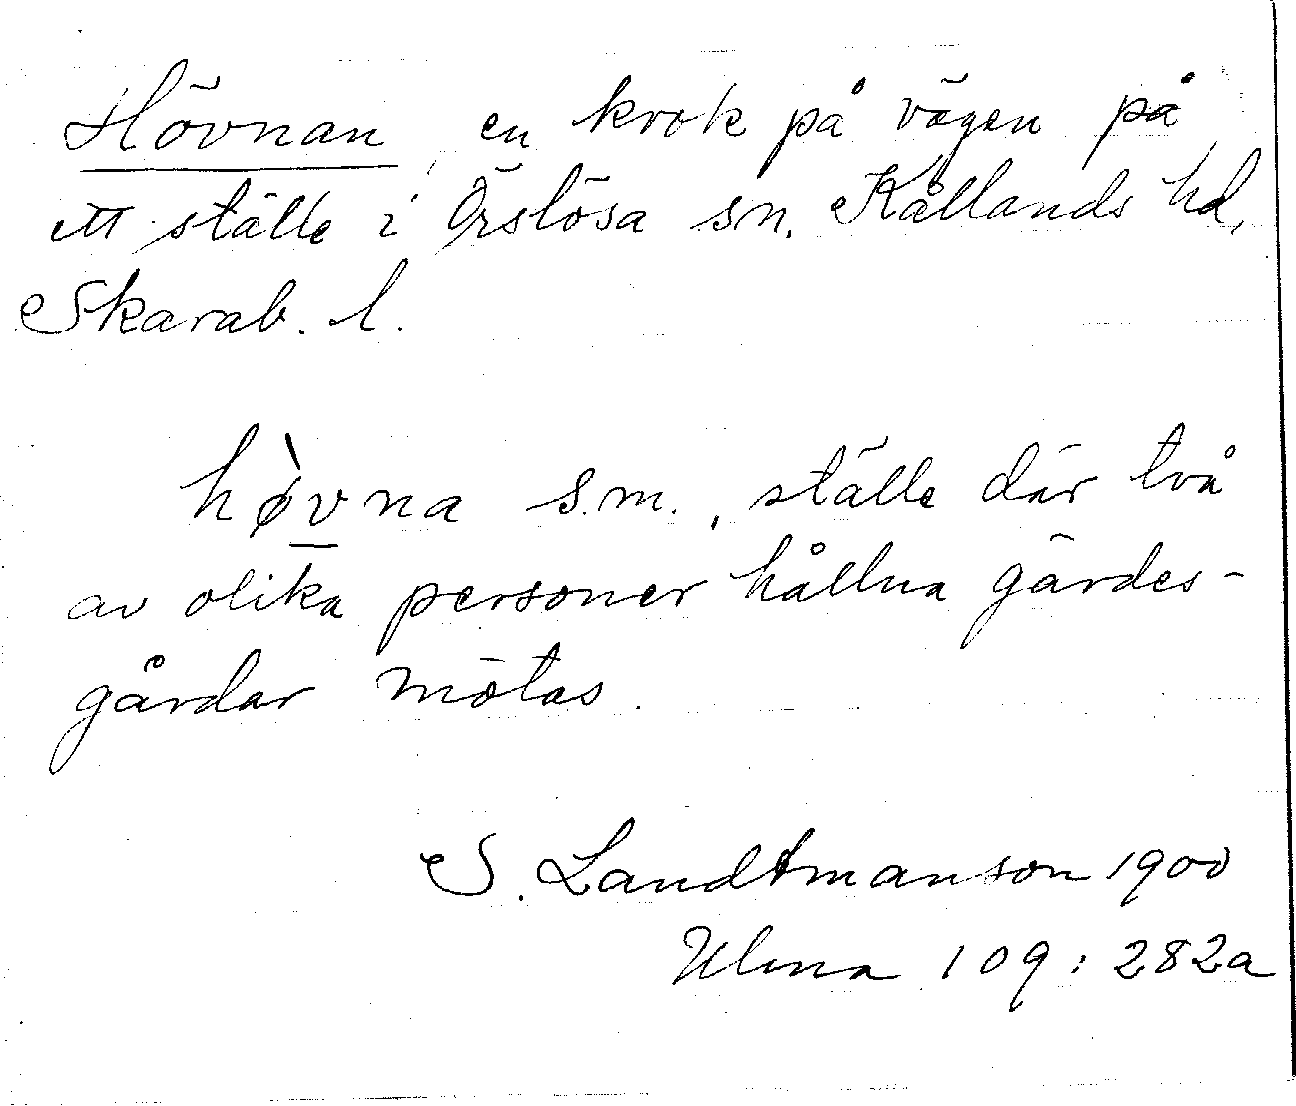 Hövnan, en krok på vägen på
ett ställe i Örslösa sn. Kållands hd,
Skarab. l.
hø̀vna s.m., ställe där två
av olika personer hållna gärdes-
gårdar mötas.
S. Landtmanson 1900
Ulma 109:282a